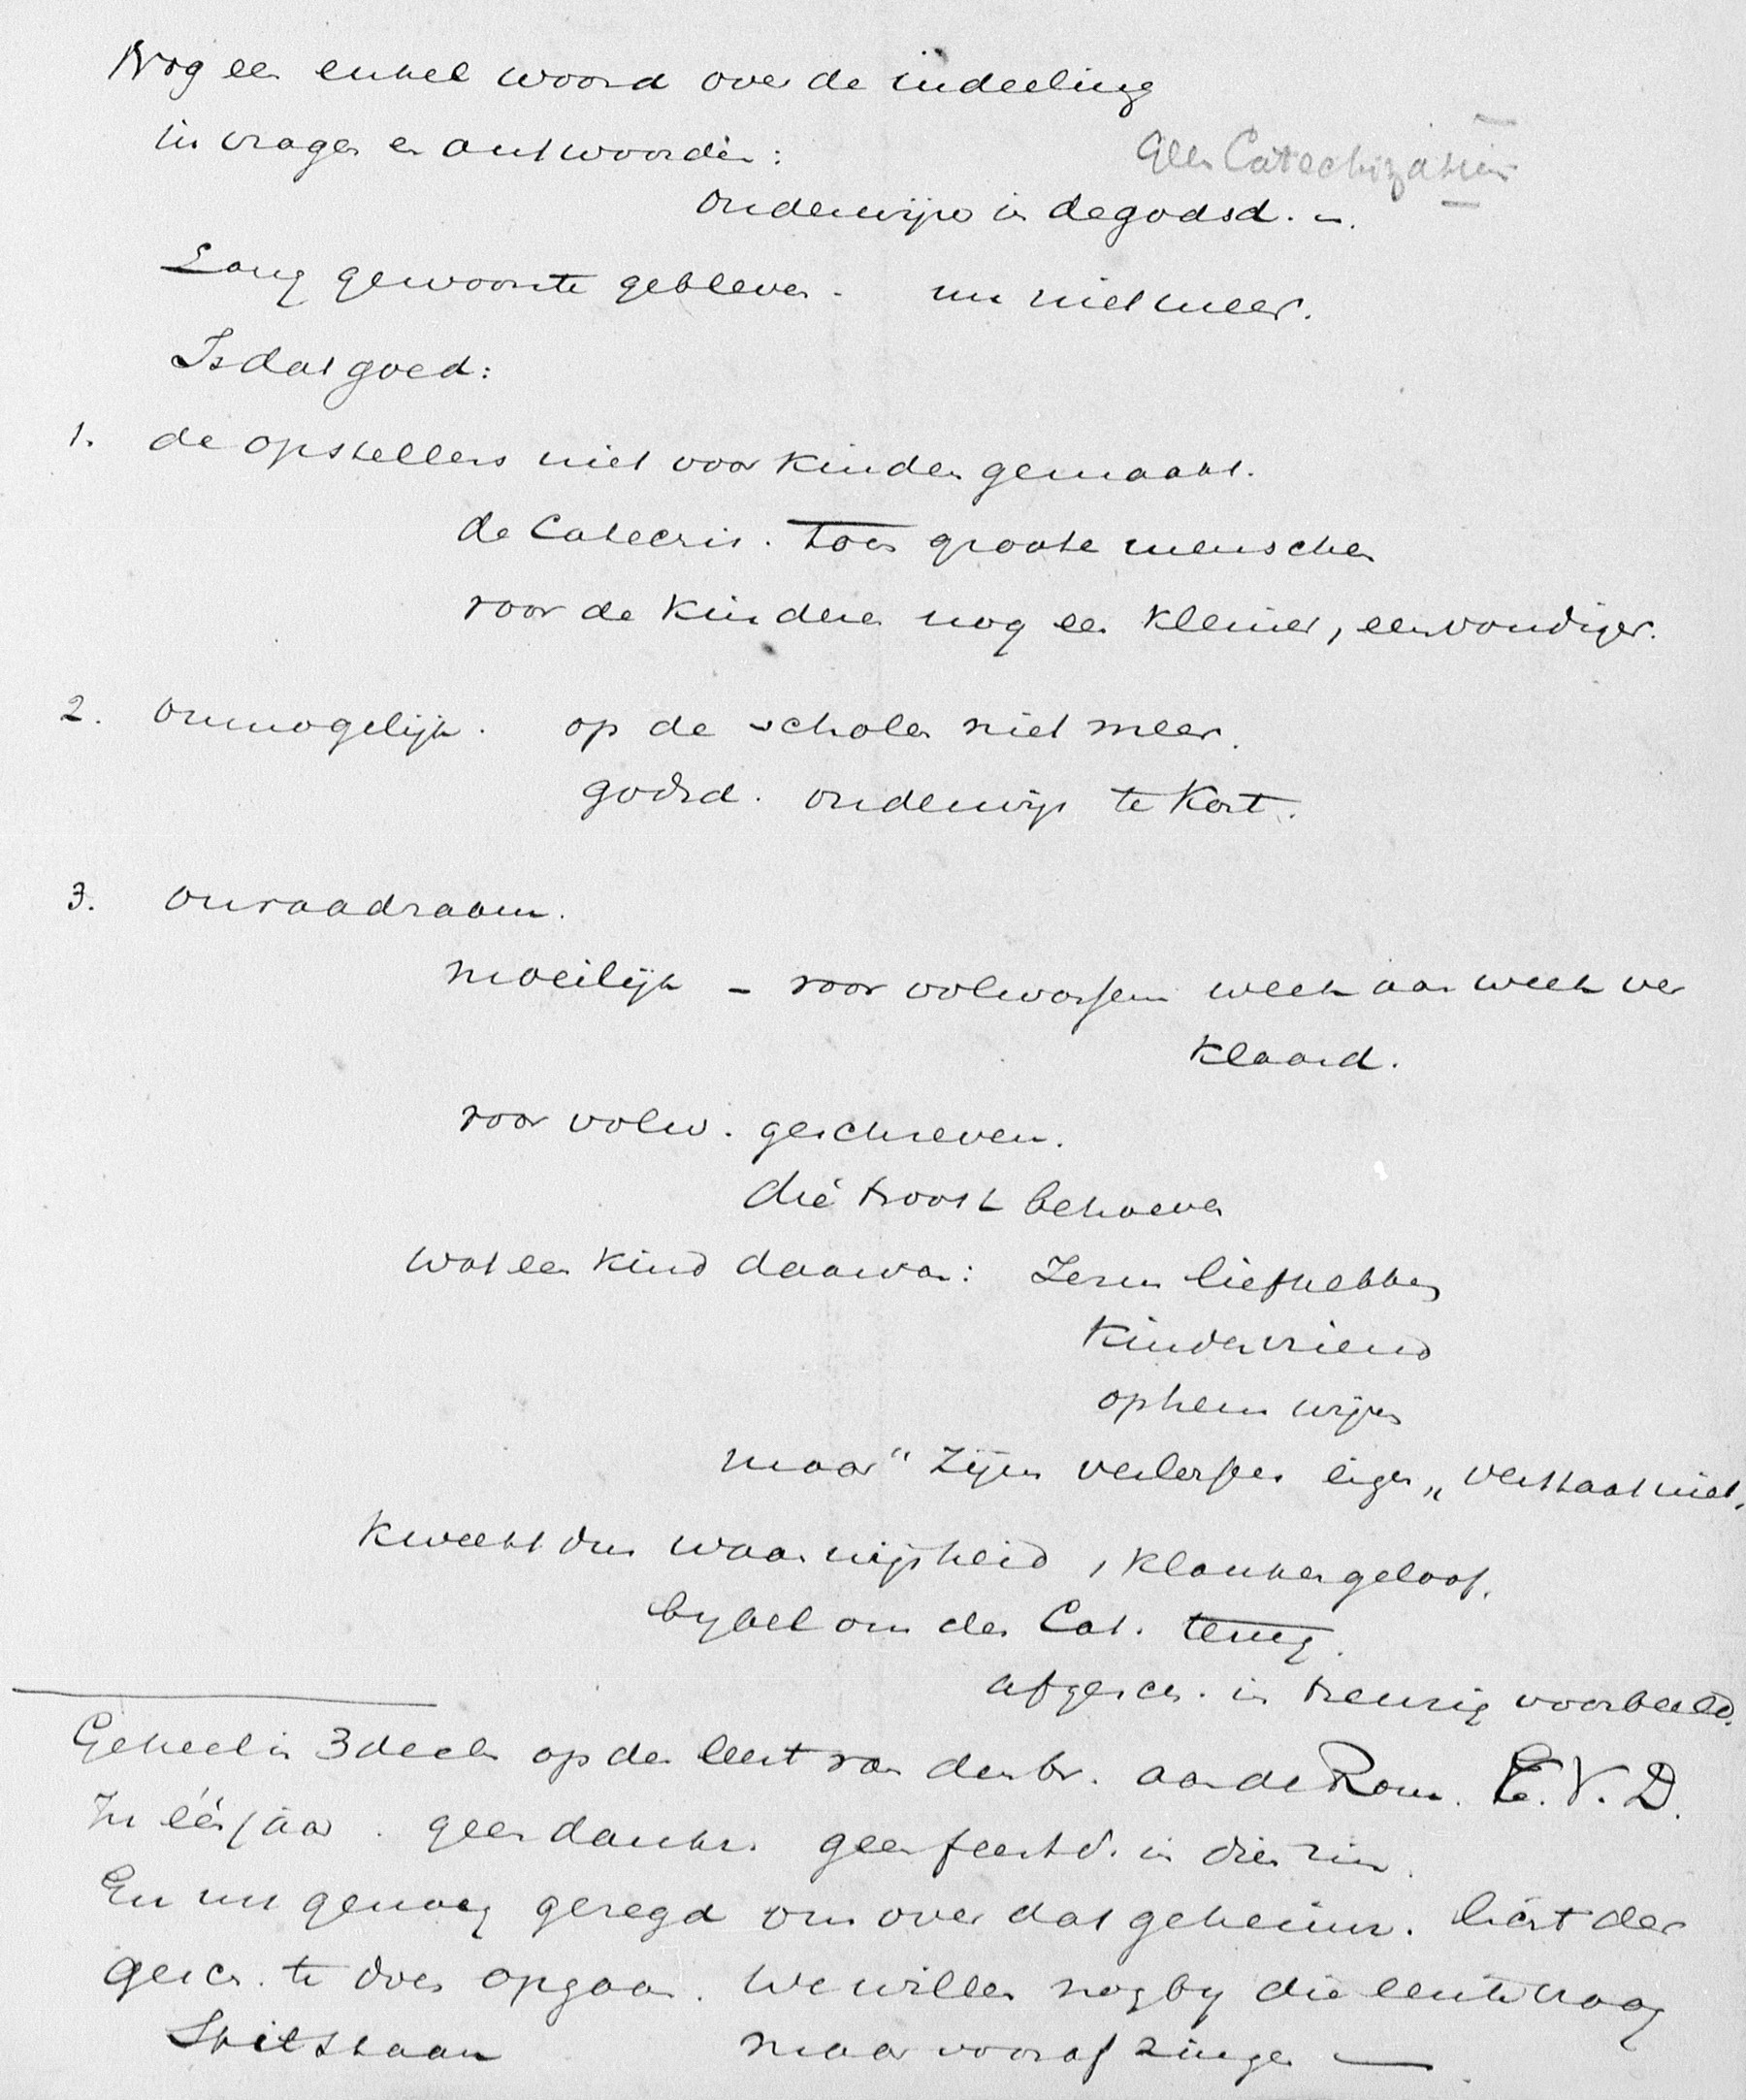 Nog een enkel woord over de indeeling
in vragen en antwoorden:
Geen Catechizatiën
onderwijs in de godsd. –.
Lang gewoonte gebleven – nu niet meer.
Is dat goed:
1. de opstellers niet voor kinderen gemaakt.
de Catechis. toen groote menschen
voor de kinderen nog een kleiner, eenvoudiger.
2. onmogelijk. op de scholen niet meer.
godsd. onderwijs te kort.
3. onraadzaam.
moeilijk – voor volwassenen week aan week ver
klaard.
voor volw. geschreven.
die troost behoeven
wat een kind daarvan: Jezus liefhebben
Kindervriend
op hem wijzen
maar "Zijn verlossers eigen„ verstaat niet.
Kweekt dus waanwijsheid, klankengeloof.
bijbel om den Cat. terug.
afgesch. in treurig voorbeeld.
Geheel in 3 deelen op den leest van den br. aan de Rom. E. V. D.
In één jaar. geen dankb. geen feestd. in dien zin.
En nu genoeg gezegd om over dat geheim. licht der
gesch. te doen opgaan. We willen nog bij die eerste vraag
Stilstaan maar vooraf zingen —